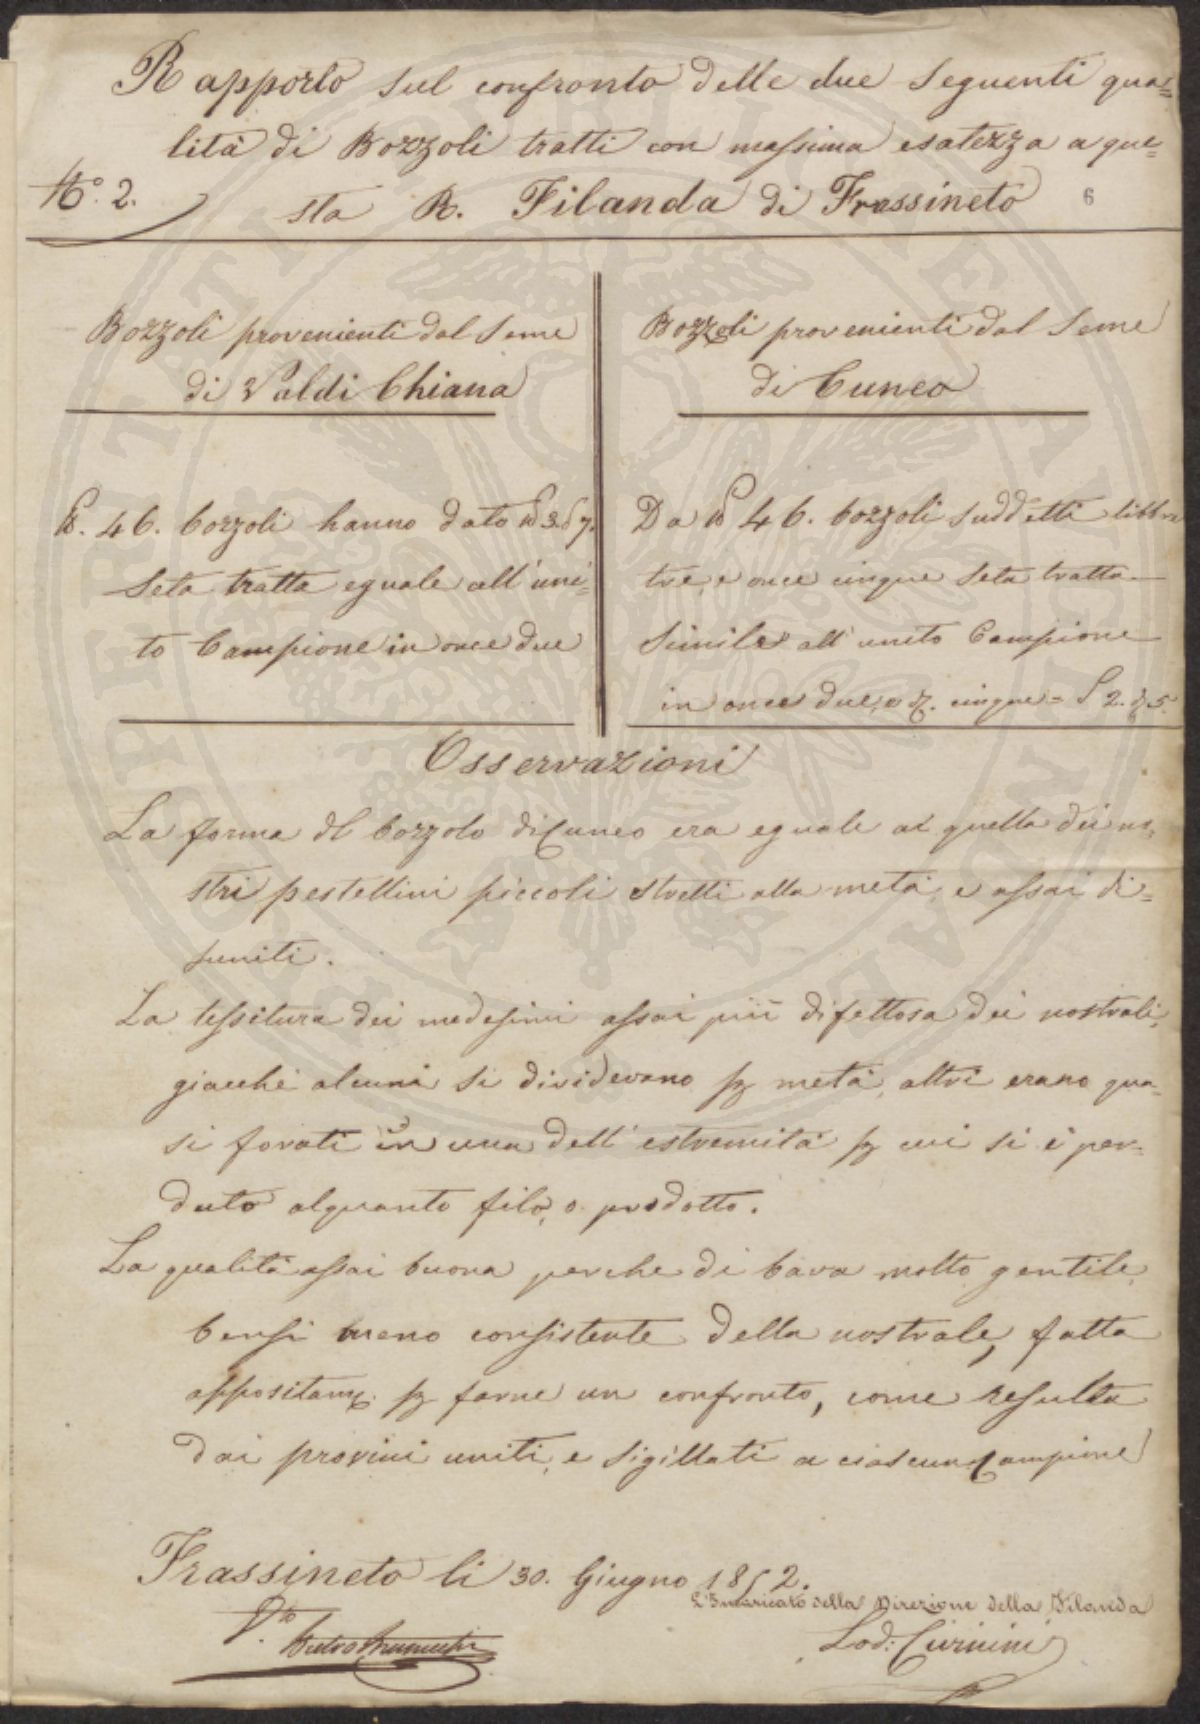 Rapporto sul confronto delle due seguenti qua=
lità di Bozzoli tratti con massima esatezza a que=
N.° 2. sta R. Filanda di Frassineto 6
Bozzoli provenienti dal Seme
di Valdi Chiana
℔. 46. bozzoli hanno dato ℔ 3. 7.
Seta tratta eguale all'uni=
to Campione in once due
Bozzoli provenienti dal Seme
di Cuneo
Da ℔ 46. bozzoli suddetti libbre
tre, e once cinque Seta tratta
Simile all'unito Campione
in once due, e cinque = 2. 5.
Osservazioni
La forma del bozzolo di Cuneo era eguale a quella dei no=
stri pestellini piccoli stretti alla metà, e assai di=
suniti.
La tessitura dei medesimi assai più difettosa dei nostrali,
giacché alcuni si dividevano p metà, altri erano qua=
si forati in una dell'estremità p cui si è per=
duto alquanto filo, o prodotto.
La qualità assai buona perche di bava molto gentile,
bensì meno consistente della nostrale, fatta
appositam. p farne un confronto, come resulta
dai provini uniti, e sigillati a ciascun Campione
Frassineto li 30. Giugno 1852.
L'Incaricato della Direzione della Filanda
V.to Pietro
Lod: Curini
PERITI